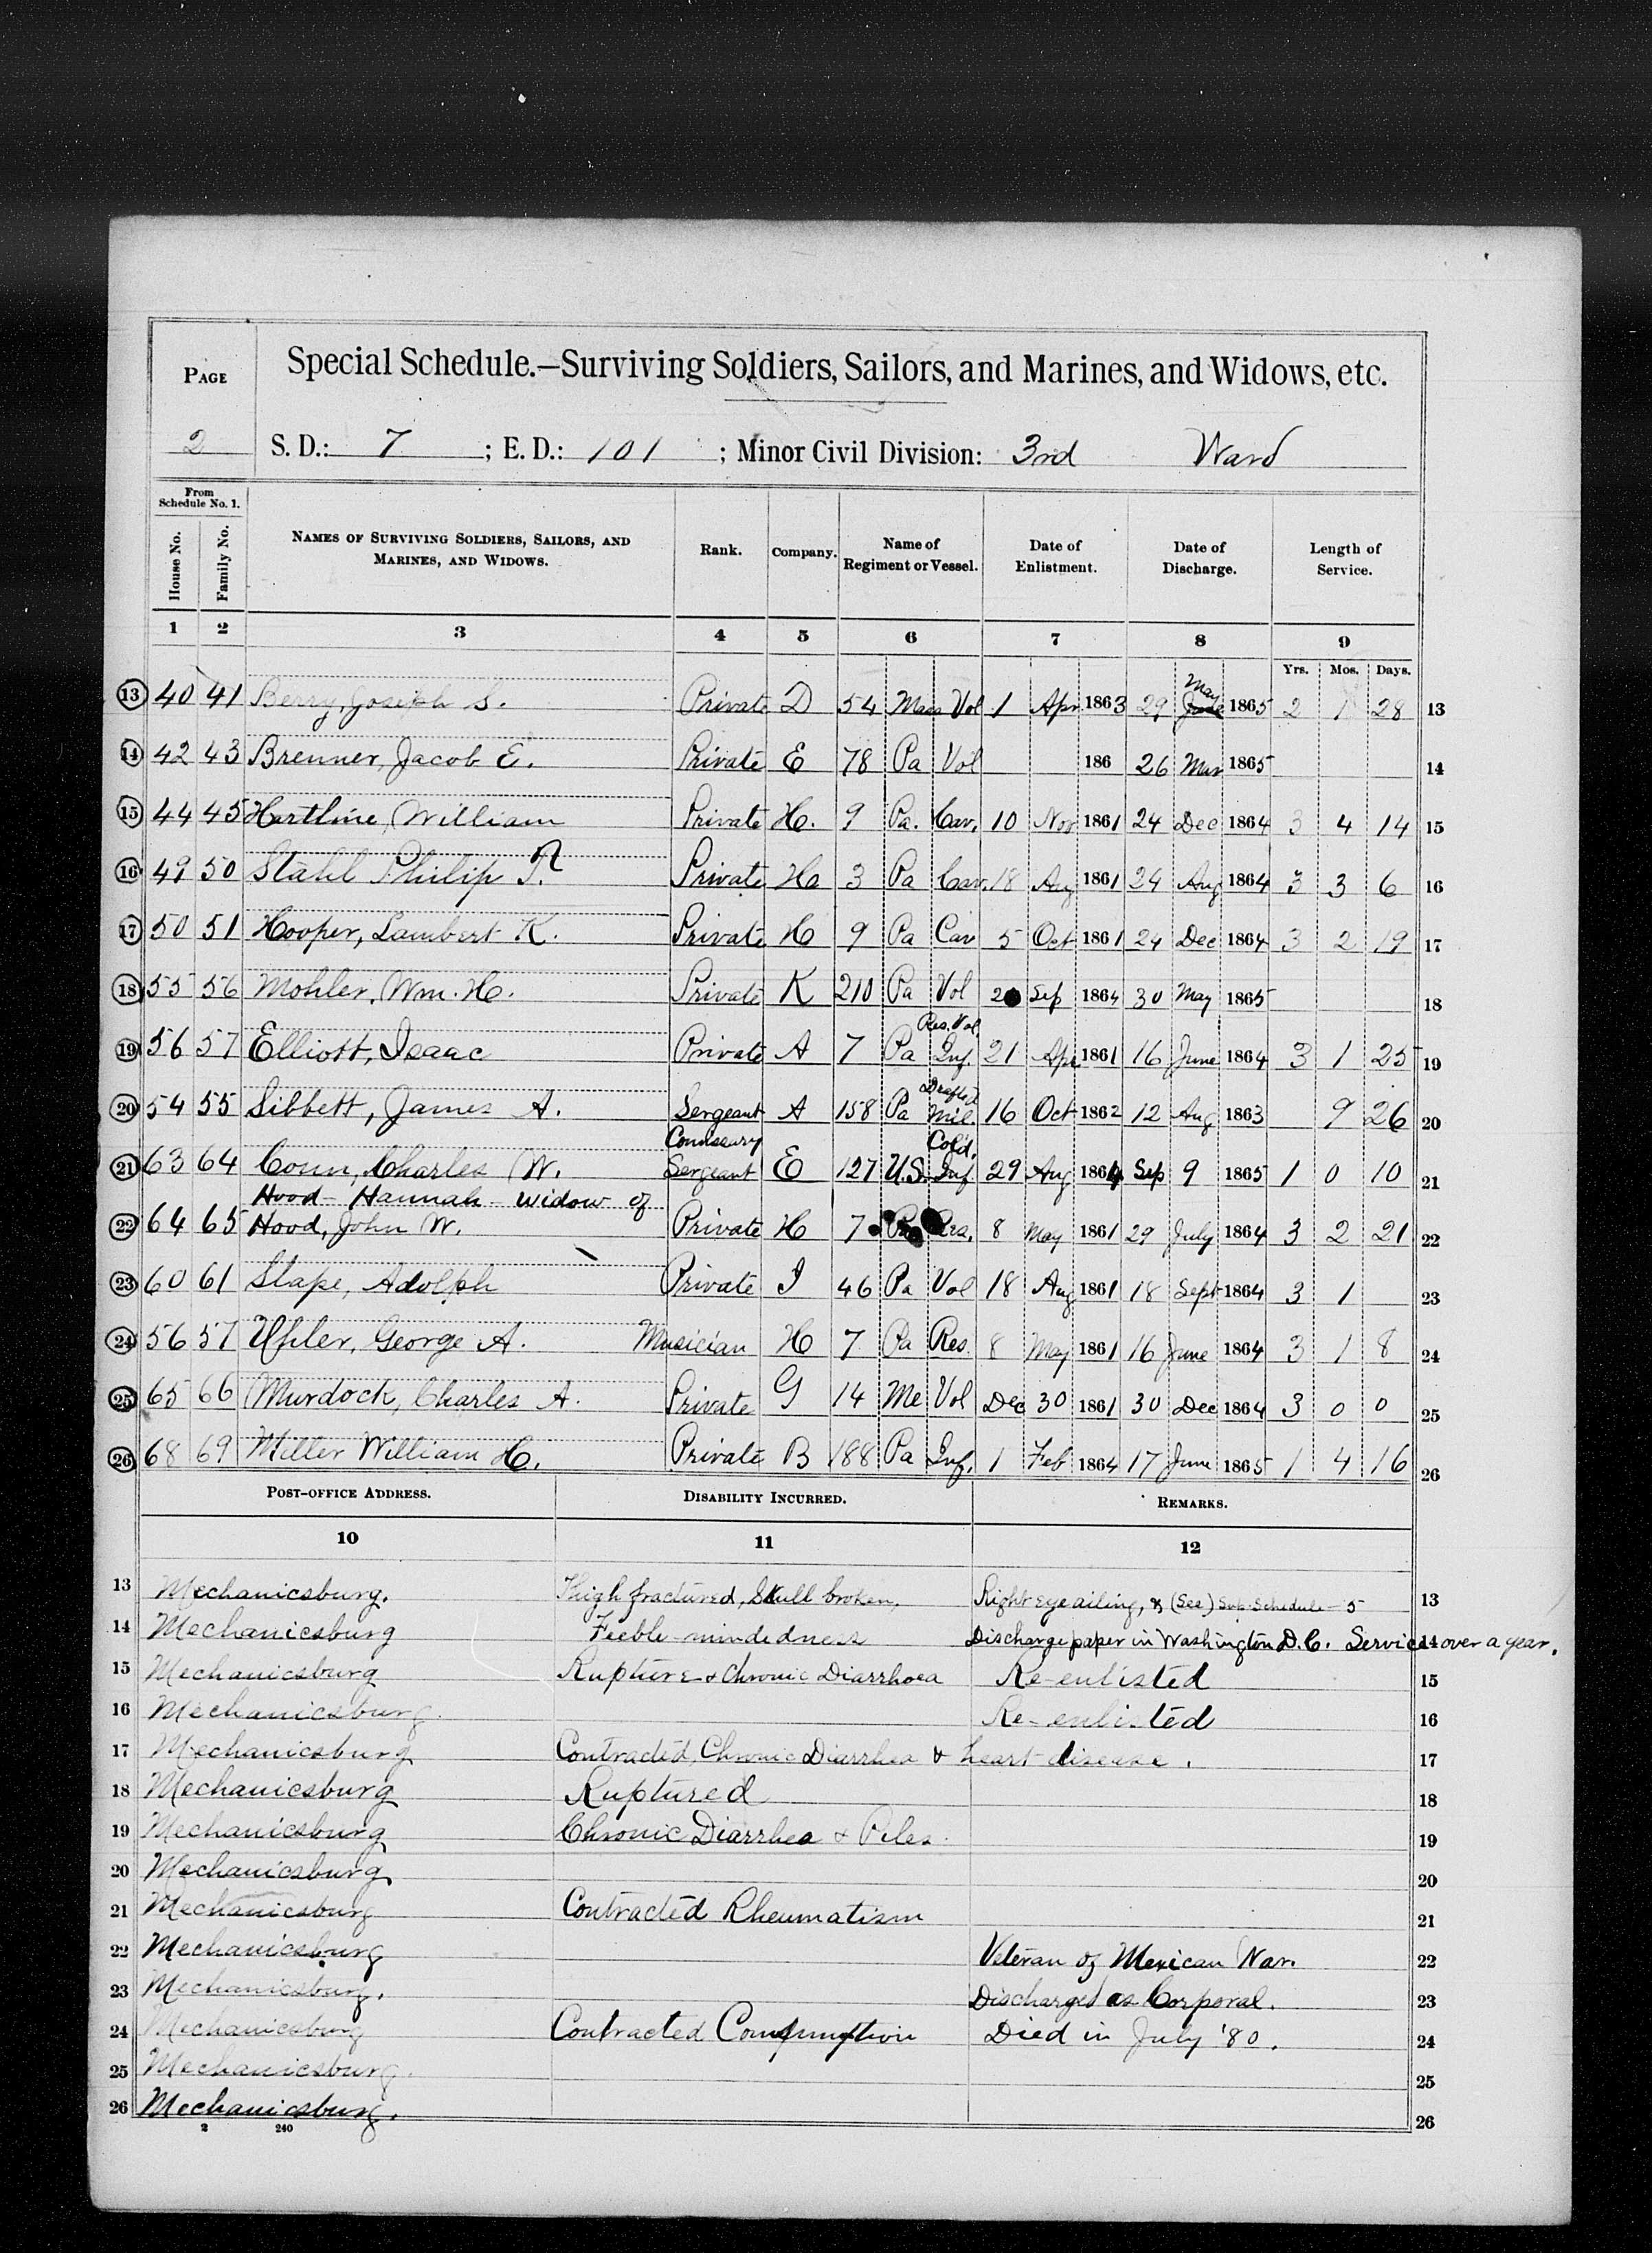 PAGE
Special Schedule.—Surviving Soldiers, Sailors, and Marines, and Widows, etc.
2 S. D.: 7 ; E. D.: 101 ; Minor Civil Division: 3rd Ward
From Schedule No. 1.
House No. Family No. NAMES OF SURVIVING SOLDIERS, SAILORS, AND MARINES, AND WIDOWS. Rank. Company. Name of Regiment or Vessel. Date of Enlistment. Date of Discharge. Length of Service.
1 2 3 4 5 6 7 8 9
Yrs. Mos. Days.
13 40 41 Berry, Joseph S. Private D 54 Mass Vol 1 Apr 1863 29 May June 1865 2 1 28 13
14 42 43 Brenner, Jacob E. Private E 78 Pa Vol 186 26 Mar 1865 14
15 44 45 Hartline, William Private H. 9 Pa. Cav. 10 Nov 1861 24 Dec 1864 3 4 14 15
16 49 50 Stahl Philip R. Private H 3 Pa Cav. 18 Aug 1861 24 Aug 1864 3 3 6 16
17 50 51 Hooper, Lambert K. Private H 9 Pa Cav 5 Oct 1861 24 Dec 1864 3 2 19 17
18 55 56 Mohler, Wm. H. Private K 210 Pa Vol 20 Sep 1864 30 May 1865 18
Res. Vol
19 56 57 Elliott, Isaac Private A 7 Pa Inf. 21 Apr 1861 16 June 1864 3 1 25 19
Drafted
20 54 55 Sibbett, James A. Sergeant A 158 Pa Mil. 16 Oct 1862 12 Aug 1863 9 26 20
Comissary Col'd.
21 63 64 Conn, Charles W. Sergeant E 127 U.S. Inf 29 Aug 1864 Sep 9 1865 1 0 10 21
Hood Hannah widow of
22 64 65 Hood, John W. Private H 7 Pa Res. 8 May 1861 29 July 1864 3 2 21 22
23 60 61 Stape, Adolph Private I 46 Pa Vol 18 Aug 1861 18 Sept 1864 3 1 23
24 56 57 Uhler, George A. Musician H 7 Pa Res. 8 May 1861 16 June 1864 3 1 8 24
25 65 66 Murdock, Charles A. Private G 14 Me Vol Dec 30 1861 30 Dec 1864 3 0 0 25
26 68 69 Miller William H. Private B 188 Pa Inf. 1 Feb 1864 17 June 1865 1 4 16 26
POST-OFFICE ADDRESS. DISABILITY INCURRED. REMARKS.
10 11 12
13 Mechanicsburg. Thigh fractured, Skull broken, Right eye ailing, & (See) Sup. Schedule - 5 13
14 Mechanicsburg Feeble-mindedness Discharge paper in Washington D.C. Service over a year. 14
15 Mechanicsburg Rupture & Chronic Diarrhoea Re-enlisted 15
16 Mechanicsburg. Re-enlisted 16
17 Mechanicsburg Contracted, Chronic Diarrhea & heart disease. 17
18 Mechanicsburg Ruptured 18
19 Mechanicsburg Chronic Diarrhea & Piles. 19
20 Mechanicsburg. 20
21 Mechanicsburg Contracted Rheumatism 21
22 Mechanicsburg Veteran of Mexican War. 22
23 Mechanicsburg. Discharged as Corporal. 23
24 Mechanicsburg Contracted Consumption Died in July '80. 24
25 Mechanicsburg. 25
26 Mechanicsburg. 26
2 240